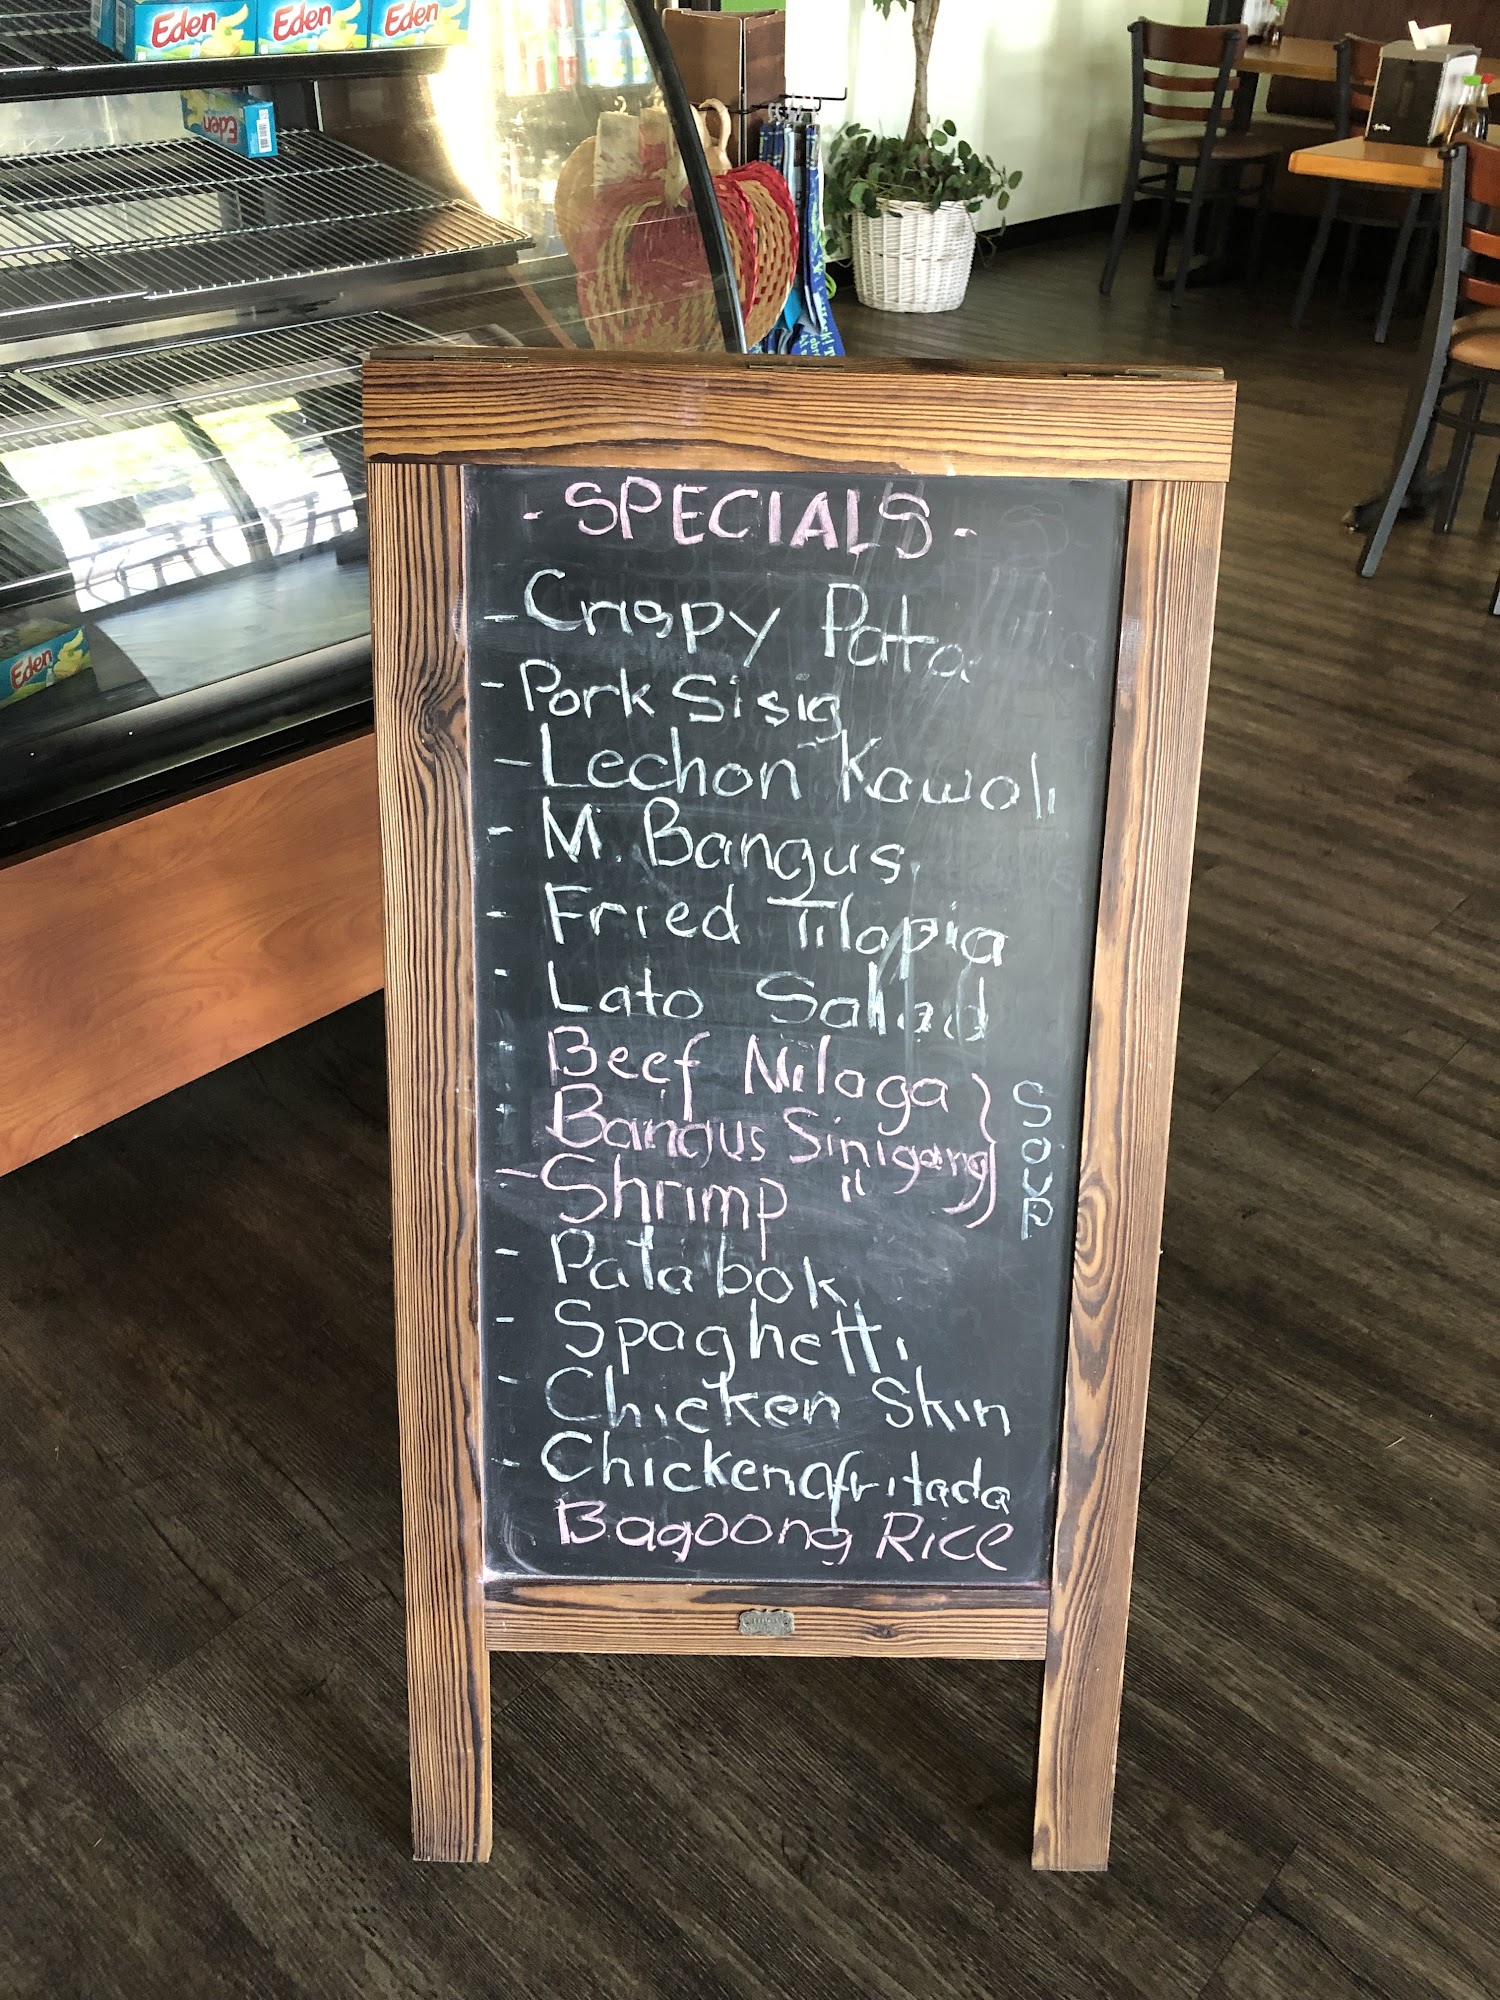 Eden Eden Eden
Eden
Eden
- SPECIALS -
- Crispy Pata
- Pork Sisig
- Lechon Kawali
- M. Bangus
- Fried Tilapia
- Lato Salad
- Beef Nilaga
- Bangus Sinigang
- Shrimp "
} SOUP
- Palabok
- Spaghetti
- Chicken Skin
- Chicken afritada
Bagoong Rice